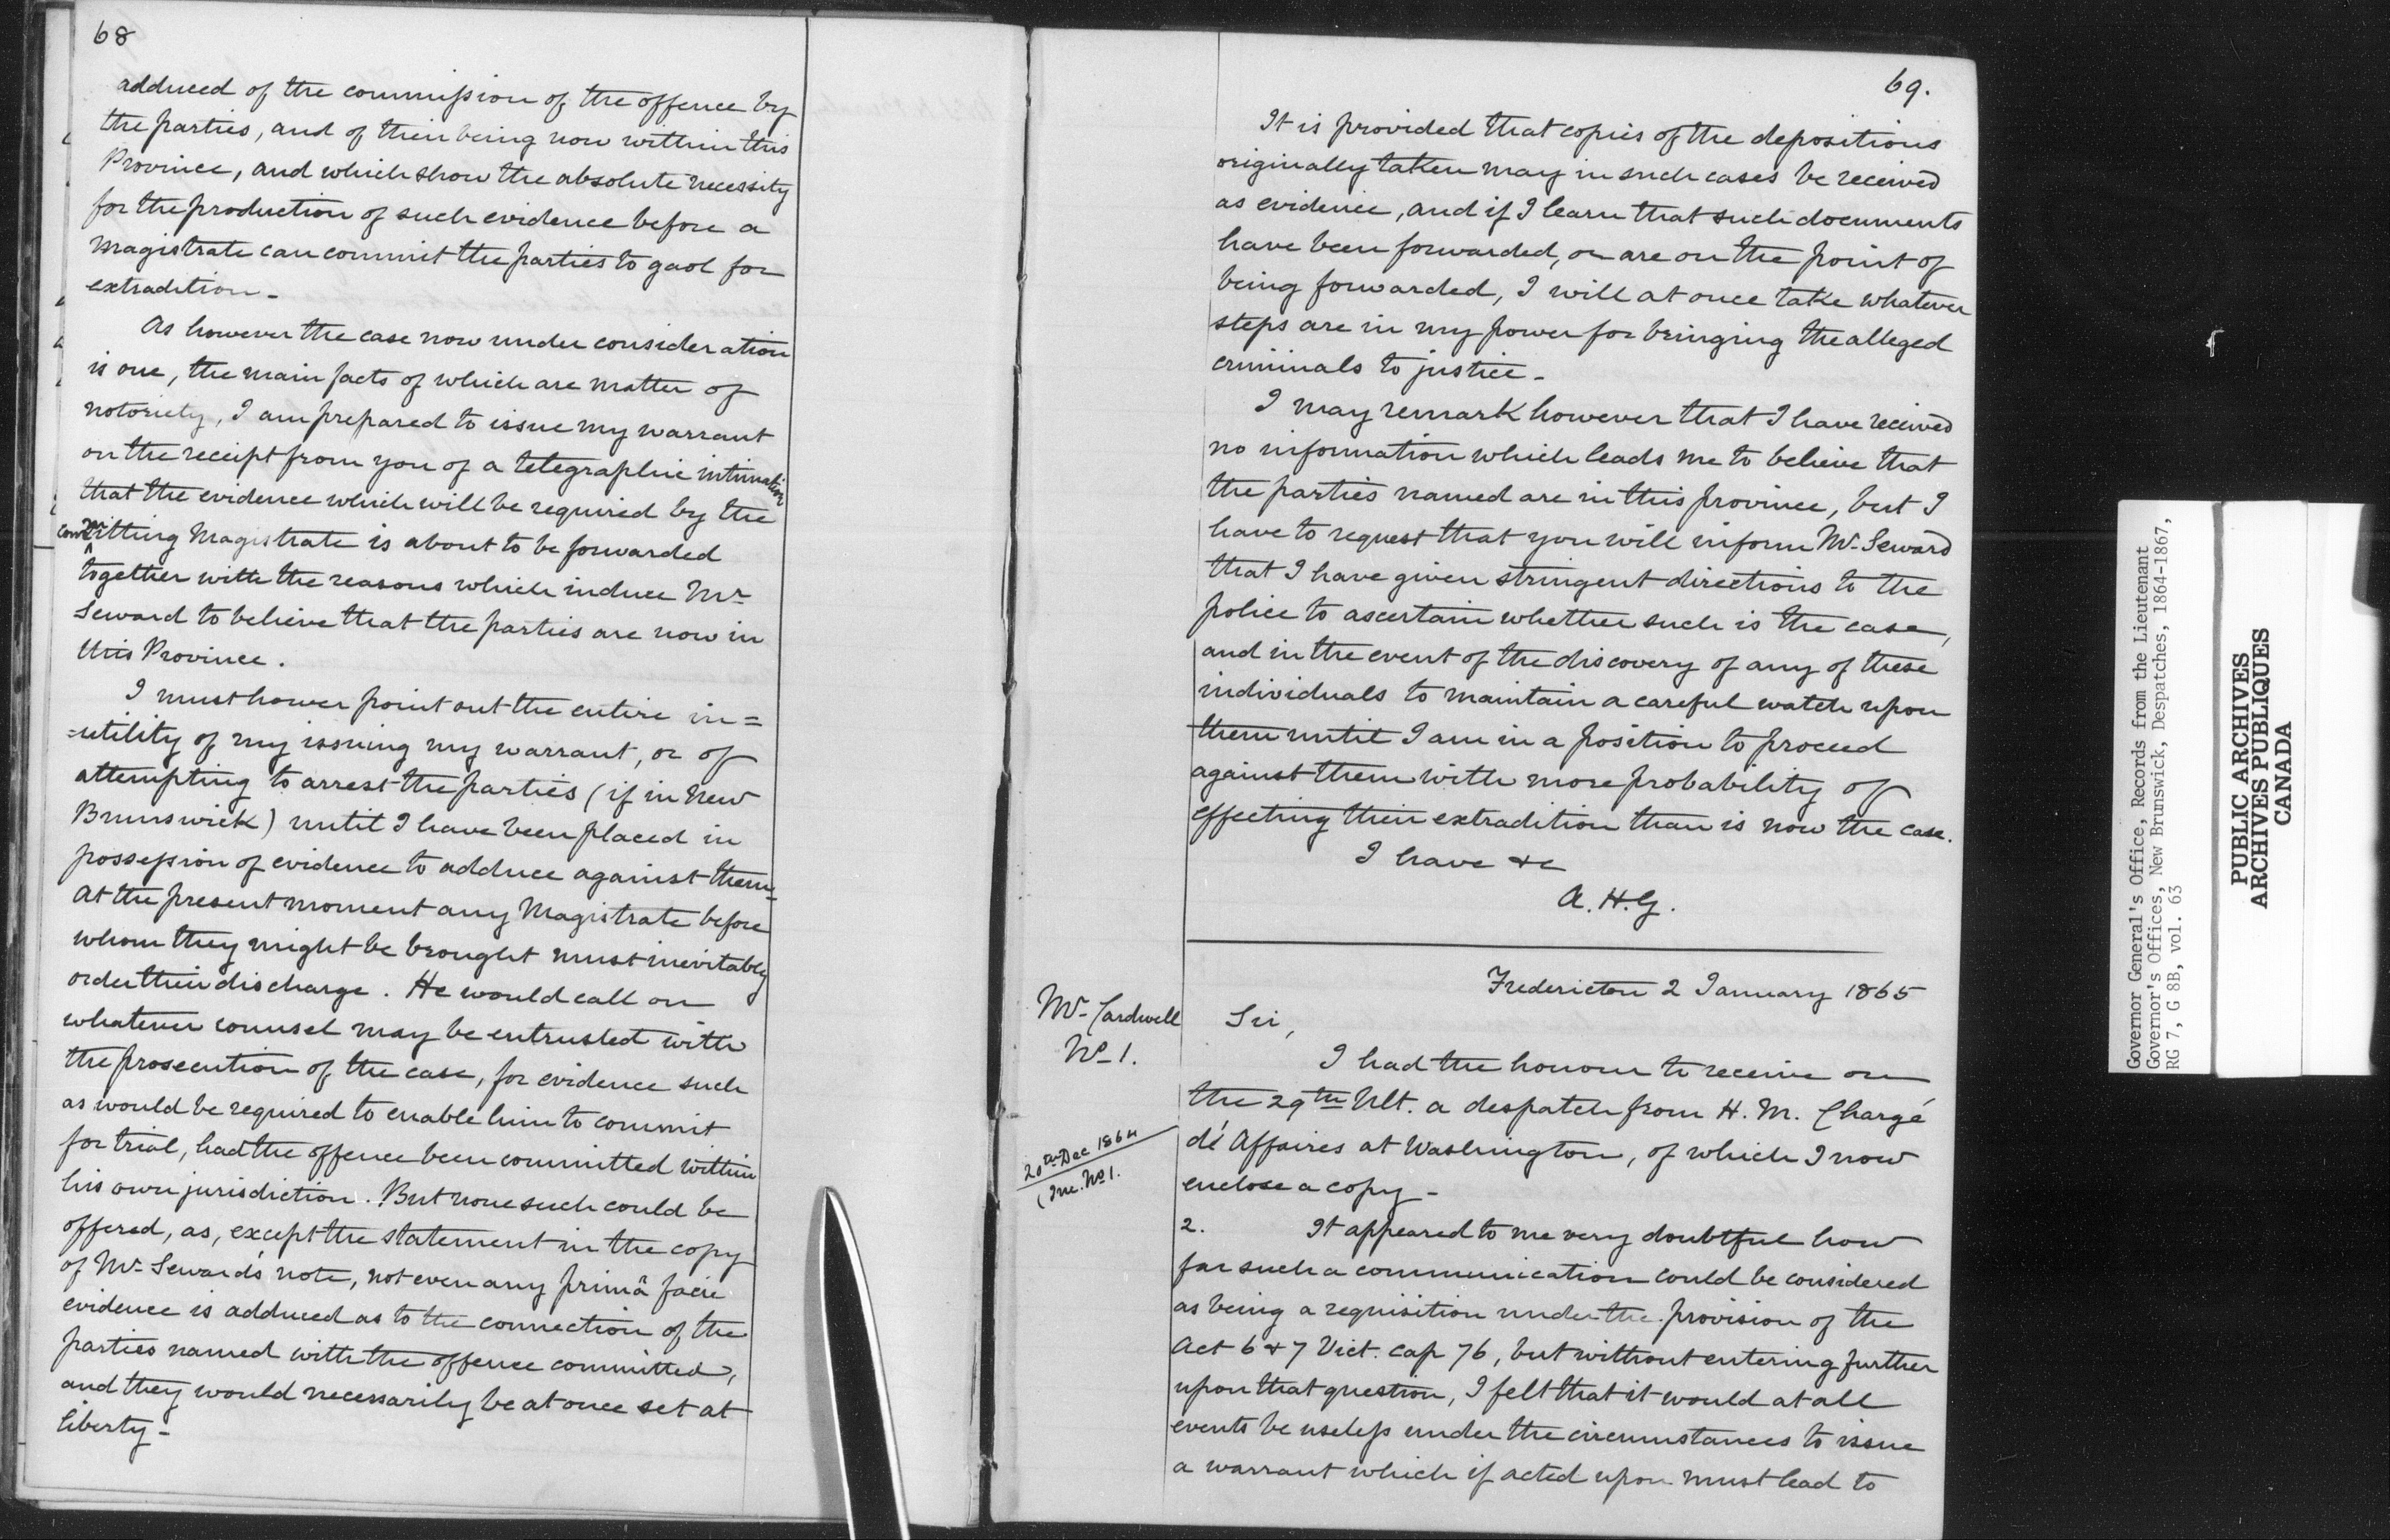 68
adduced of the commission of the offence by
the parties, and of their being now within this
Province, and which show the absolute necessity
for the production of such evidence before a
Magistrate can commit the parties to gaol for
extradition -
As however the case now under consideration
is one, the main facts of which are matter of
notoriety, I am prepared to issue my warrant
on the receipt from you of a telegraphic intimation
that the evidence which will be required by the
committing Magistrate is about to be forwarded
together with the reasons which induce Mr
Seward to believe that the parties are now in
this Province.
I must hower point out the entire in=
=utility of my issuing my warrant, or of
attempting to arrest the parties (if in New
Brunswick) until I have been placed in
possession of evidence to adduce against them =
At the present moment any Magistrate before
whom they might be brought must inevitably
order their discharge. He would call on
whatever counsel may be entrusted with
the prosecution of the case, for evidence such
as would be required to enable him to commit
for trial, had the offence been committed within
his own jurisdiction. But none such could be
offered, as, except the statement in the copy
of Mr Seward's note, not even any primâ facie
evidence is adduced as to the connection of the
parties named with the offence committed,
and they would necessarily be at once set at
liberty -
69.
It is provided that copies of the depositions
originally taken may in such cases be received
as evidence, and if I learn that such documents
have been forwarded, or are on the point of
being forwarded, I will at once take whatever
steps are in my power for bringing the alleged
criminals to justice -
I may remark however that I have received
no information which leads me to believe that
the parties named are in this province, but I
have to request that you will inform Mr Seward
that I have given stringent directions to the
police to ascertain whether such is the case,
and in the event of the discovery of any of these
individuals to maintain a careful watch upon
them until I am in a position to proceed
against them with more probability of
effecting their extradition than is now the case.
I have &c
A. H. G.
Fredericton 2 January 1865
Mr Cardwell
No 1.
Sir,
I had the honour to receive on
the 29th Ult. a despatch from H. M. Chargé
dé Affaires at Washington, of which I now
enclose a copy -
20th Dec 1864
(Inc. No 1.
2. It appeared to me very doubtful how
far such a communication could be considered
as being a requisition under the provision of the
Act 6 & 7 Vict. cap 76, but without entering further
upon that question, I felt that it would at all
events be useless under the circumstances to issue
a warrant which if acted upon must lead to
Governor General's Office, Records from the Lieutenant
Governor's Offices, New Brunswick, Despatches, 1864-1867,
RG 7, G 8B, vol. 63
PUBLIC ARCHIVES
ARCHIVES PUBLIQUES
CANADA